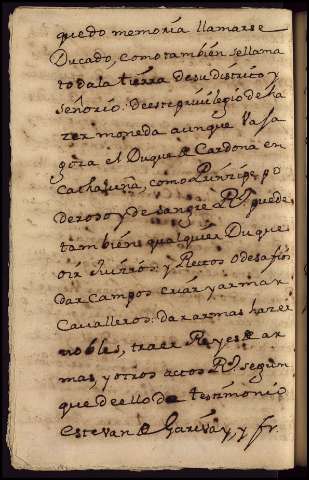 quedo memoria llamarse
Ducado, como tambien se llama
toda la tierra de su distrito y
señorio. De este privilegio de ha
zer moneda aunque Vsa
gora el Duque de Cardona en
Cathaluña, como Principe, po
deroso y de sangre Rl. puede
tambien qualquier Duque
oir Jurros, y Rectos o desafios
dar campos criar y armar
Cavalleros: dar armas hazer
nobles, traer Reyes de ar
mas, y otros actos Rs. segun
que de ello da testimonio
estevan de Garivay, y fr.